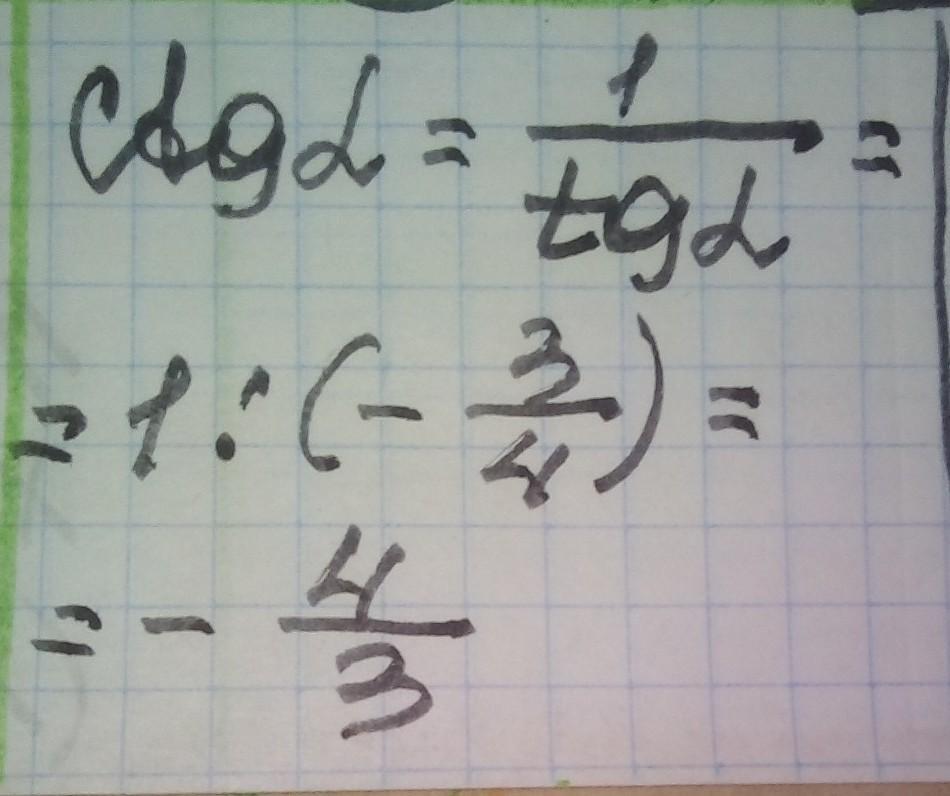 ctgα = 1/tgα =
= 1 : (- 3/4) =
= - 4/3